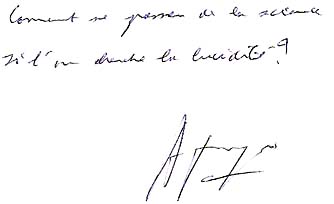 Comment se passer de la science
si l'on cherche la lucidité ?